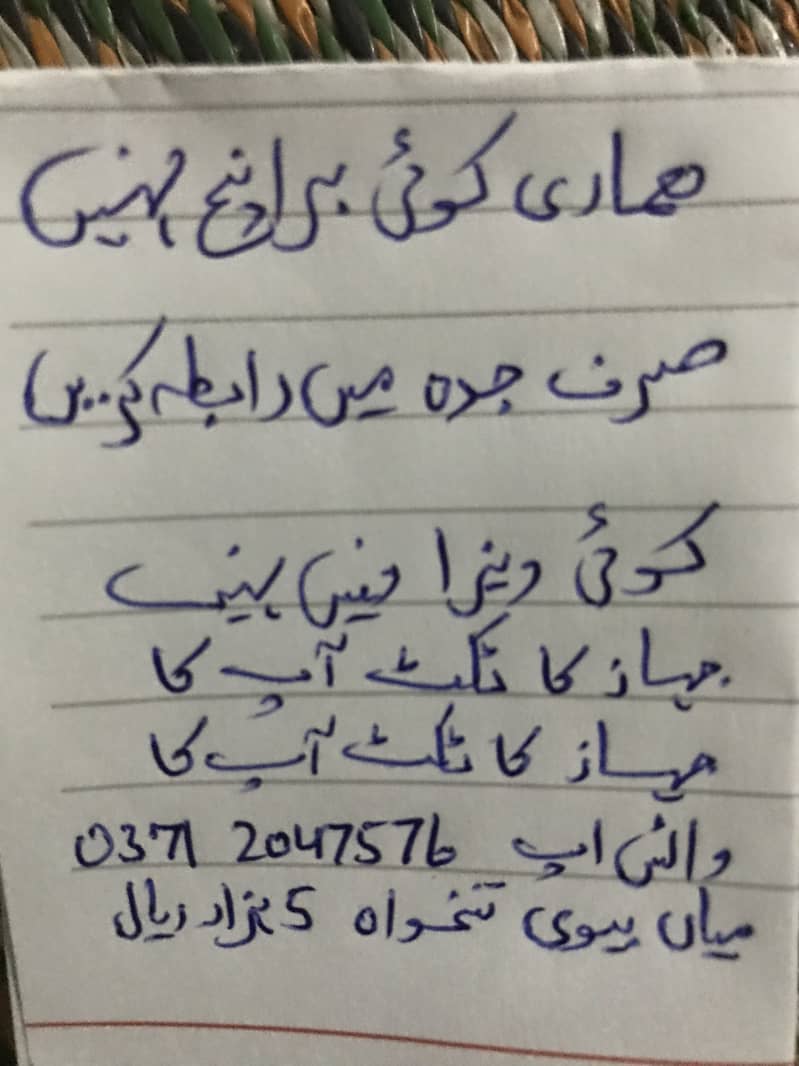 ھماری کوئی برانچ نہیں
صرف جدہ میں رابطہ کریں
کوئی ویزا فیس نہیں
جہاز کا ٹکٹ آپ کا
جہاز کا ٹکٹ آپ کا
واٹس اپ 0371 2047576
میاں بیوی تنخواہ 5 ہزار ریال